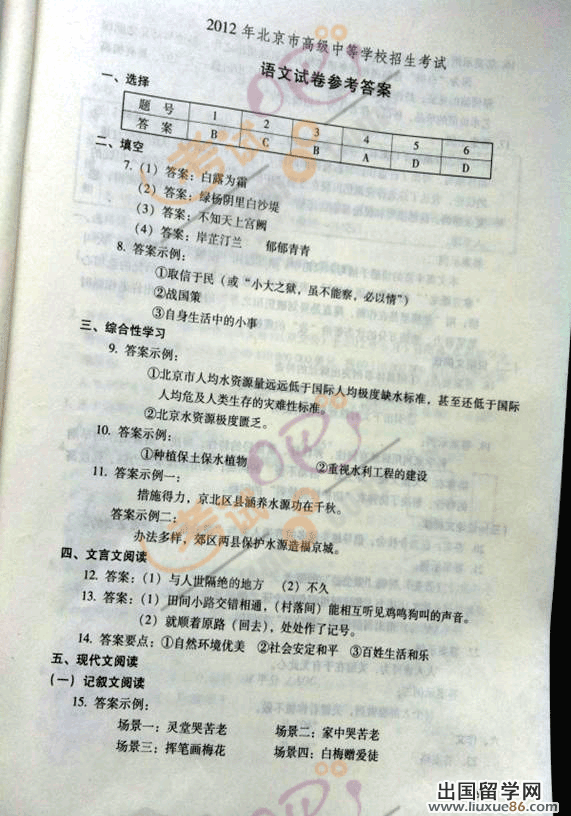 2012年北京市高级中等学校招生考试
语文试卷参考答案
一、选择
题 号 1 2 3 4 5 6
答 案 B C B A D D
二、填空
7. (1) 答案：白露为霜
(2) 答案：绿杨阴里白沙堤
(3) 答案：不知天上宫阙
(4) 答案：岸芷汀兰 郁郁青青
8. 答案示例：
①取信于民（或“小大之狱，虽不能察，必以情”）
②战国策
③自身生活中的小事
三、综合性学习
9. 答案示例：
①北京市人均水资源量远远低于国际人均极度缺水标准，甚至还低于国际
人均危及人类生存的灾难性标准。
②北京水资源极度匮乏。
10. 答案示例：
①种植保土保水植物 ②重视水利工程的建设
11. 答案示例一：
措施得力，京北区县涵养水源功在千秋。
答案示例二：
办法多样，郊区两县保护水源造福京城。
四、文言文阅读
12. 答案：(1) 与人世隔绝的地方 (2) 不久
13. 答案：(1) 田间小路交错相通，（村落间）能相互听见鸡鸣狗叫的声音。
(2) 就顺着原路（回去），处处作了记号。
14. 答案要点：①自然环境优美 ②社会安定和平 ③百姓生活和乐
五、现代文阅读
(一) 记叙文阅读
15. 答案示例：
场景一：灵堂哭苦老 场景二：家中哭苦老
场景三：挥笔画梅花 场景四：白梅赠爱徒
出国留学网
www.liuxue86.com